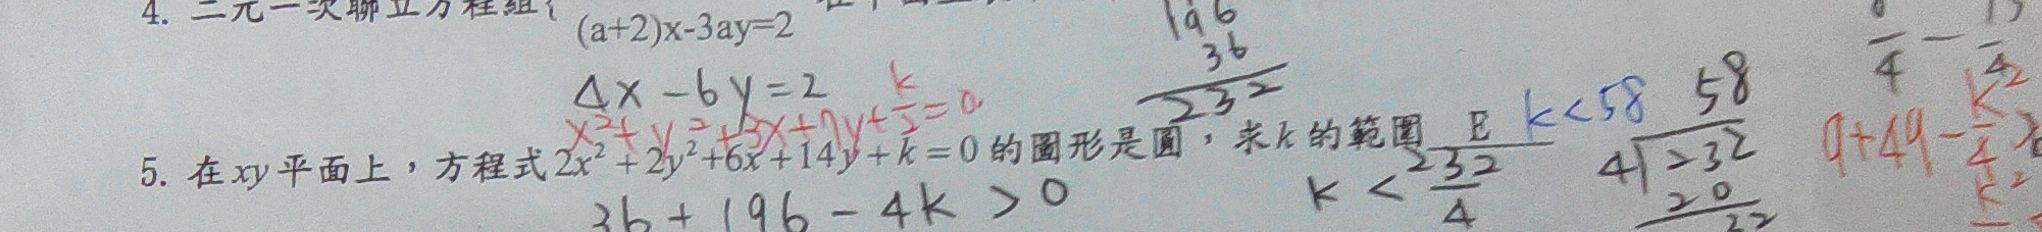 4. 二元一次聯立方程組{
(a+2)x-3ay=2
196
36
232
4x-6y=2
x²+y²+3x+7y+k/2=0
5. 在xy平面上，方程式2x²+2y²+6x+14y+k=0的圖形是圓，求k的範圍 E k<58
36+196-4k>0
k<232/4
58
4)232
20
32
9+49-